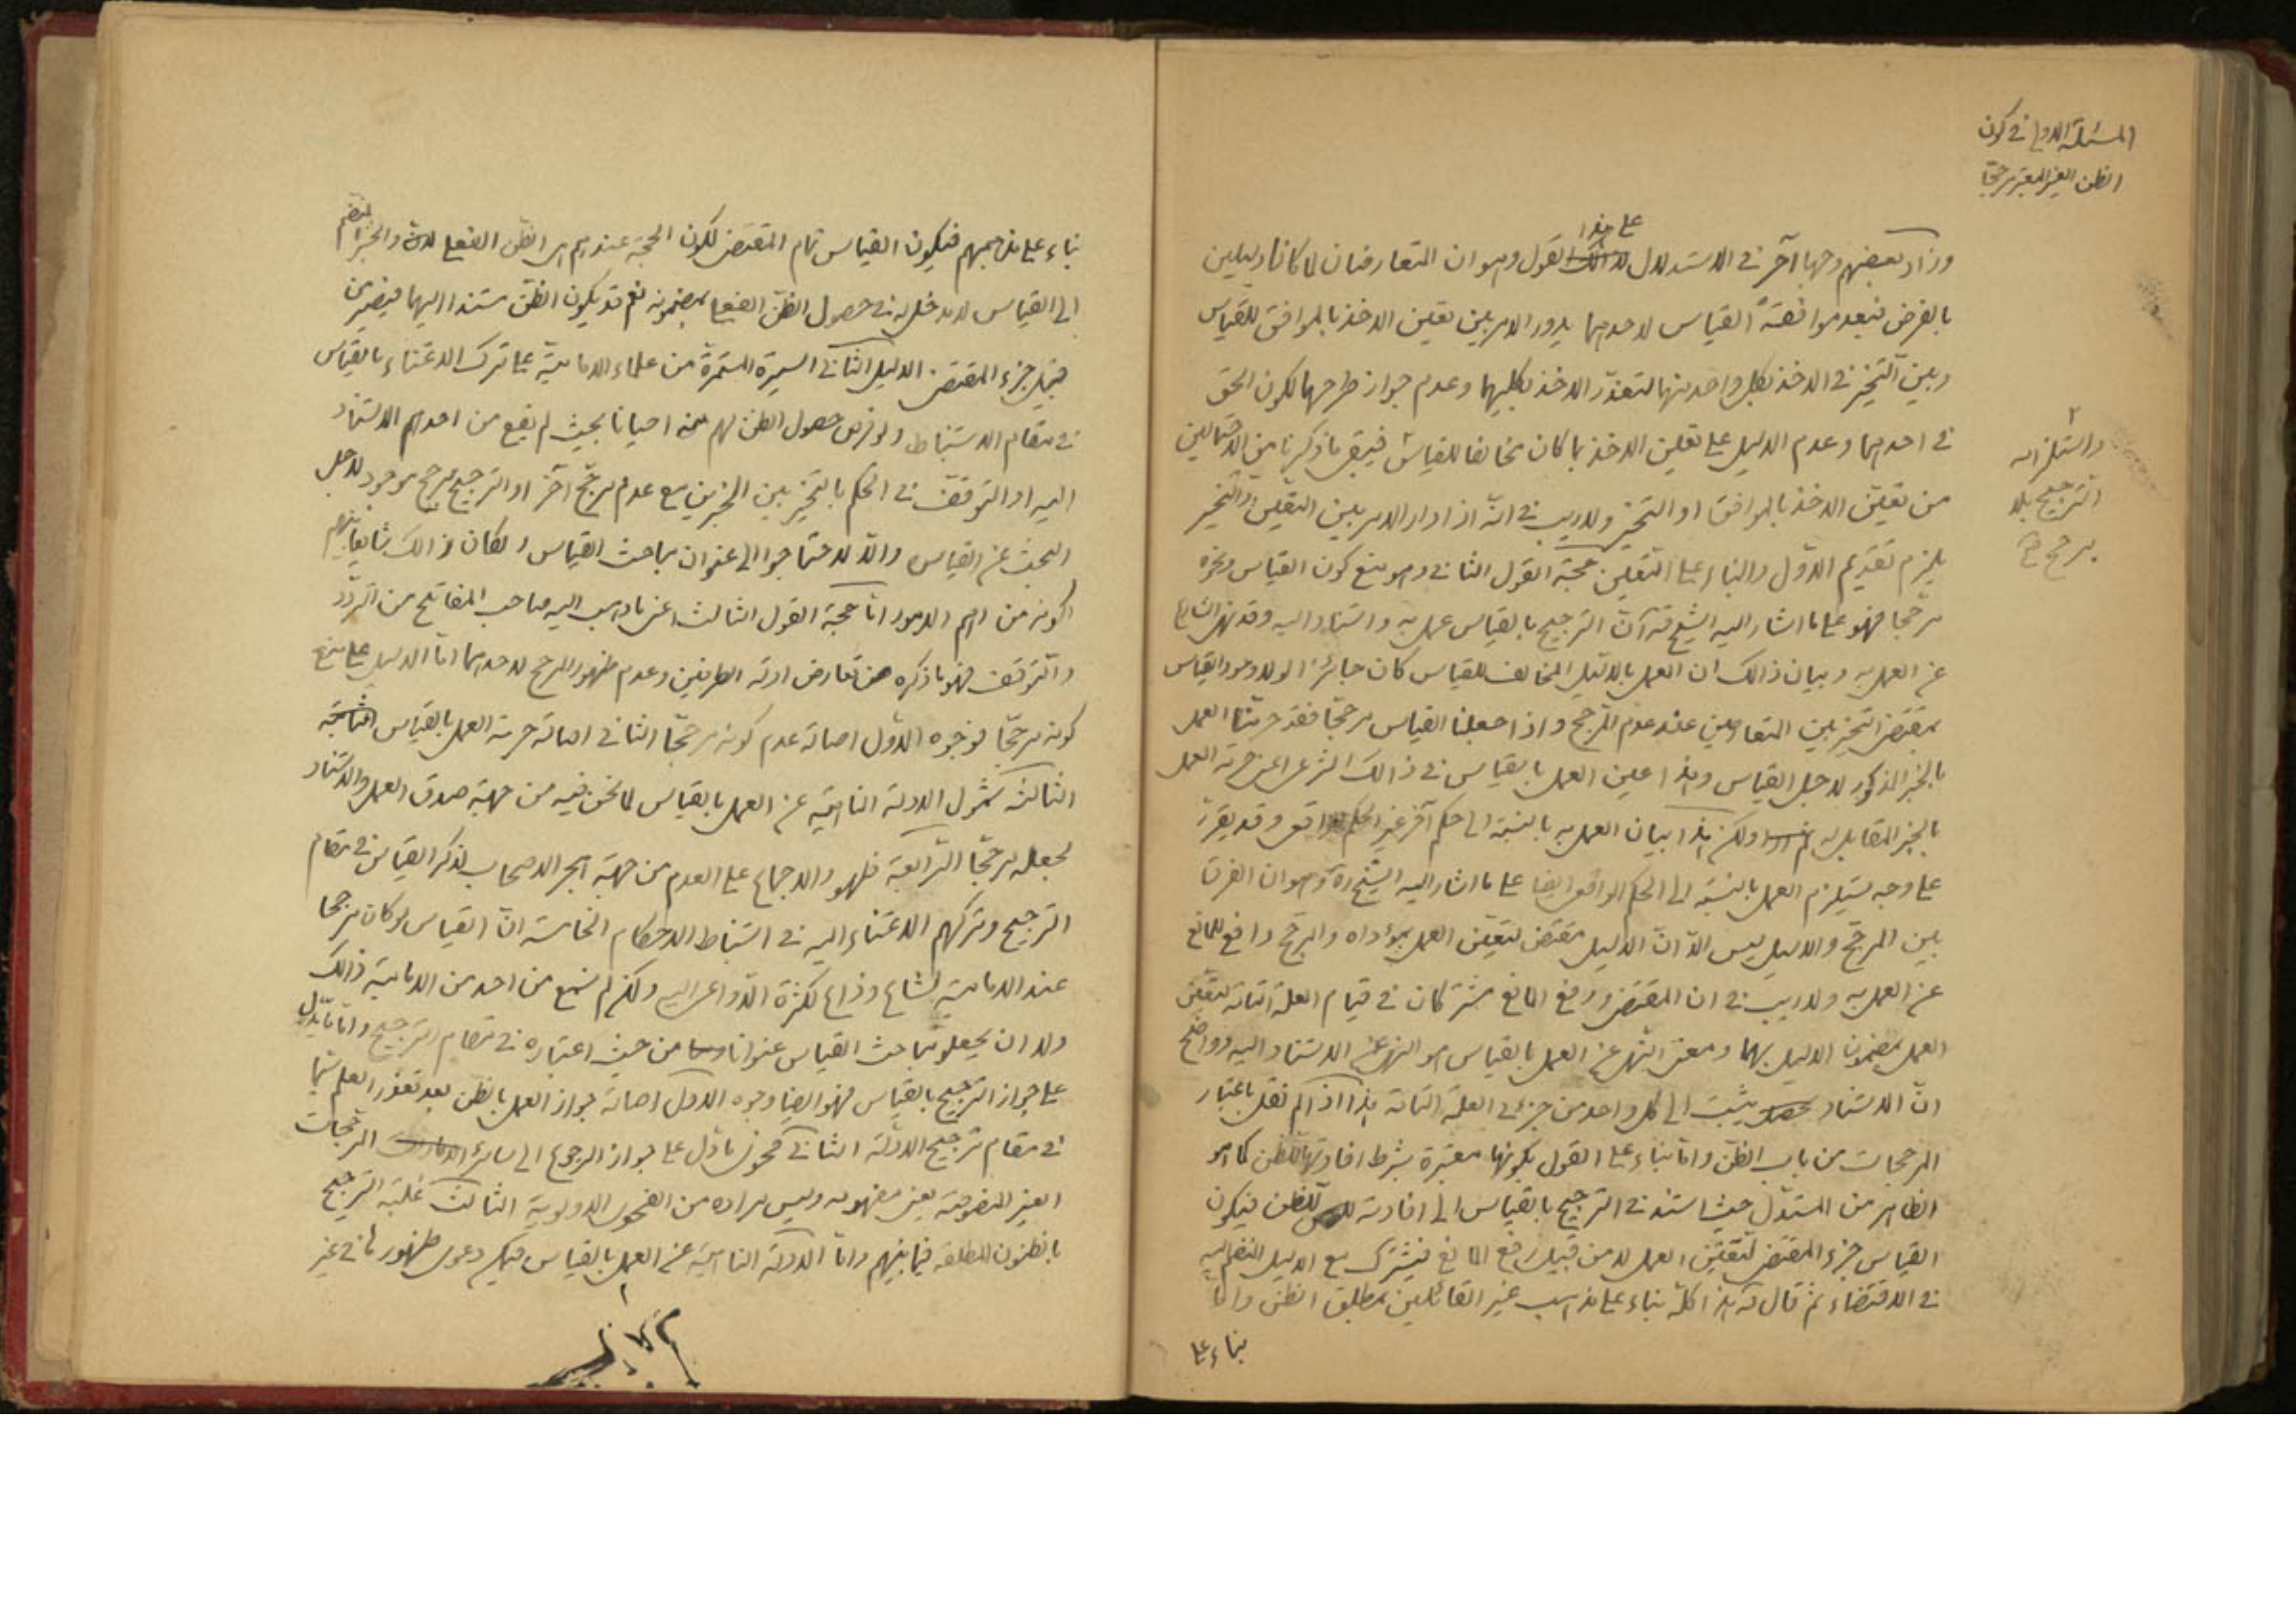 المسئلة الاولى في كون
الظن الغير المعتبر مرجحا
على هذا
وزاد بعضهم وجها آخر في الاستدلال القول وهو ان المتعارضان لما كانا دليلين
بالفرض فبعد موافقة القياس لاحدهما يدور الامر بين تعين الاخذ بالموافق للقياس
وبين التخيير في الاخذ بكل واحد منهما لتعذر الاخذ بكليهما وعدم جواز طرحهما لكون الحق
في احدهما وعدم الدليل على تعين الاخذ بما كان مخالفا للقياس فيبقى ما ذكرنا من الاحتمالين
من تعين الاخذ بالموافق او التخيير ولا ريب في انه اذا دار الامر بين التعيين والتخيير
واستلزامه
الترجيح بلا
مرجح
يلزم تقديم الاول والبناء على التعيين حجة القول الثاني وهو منع كون القياس ونحوه
مرجحا فهو على ما اشار اليه الشيخ ان الترجيح بالقياس عمل به واستناد اليه وقد نهى الشارع
عن العمل به وبيان ذالك ان العمل بالدليل المخالف للقياس كان جائزا لولا وجود القياس
بمقتضى التخيير بين المتعارضين عند عدم المرجح واذا جعلنا القياس مرجحا فقد حرمنا العمل
بالخبر المذكور لاجل القياس وهذا عين العمل بالقياس في ذالك الشرعى اعنى حرمة العمل
بالخبر المقابل به ولكن هذا بيان العمل به بالنسبة الى حكم آخر غير الحكم الواقعى وقد يقرر
على وجه يستلزم العمل بالنسبة الى الحكم الواقعى ايضا على ما اشار اليه الشيخ ره وهو ان الفرق
بين المرجح والدليل ليس الا ان الدليل مقتضى لتعين العمل بمؤداه والمرجح دافع للمانع
عن العمل به ولا ريب في ان المقتضى ورفع المانع مشتركان في قيام العلة التامة لتعين
العمل بمضمون الدليل بهما ومعنى النهى عن العمل بالقياس هو النهى عن الاستناد اليه وواضح
ان الاستناد يثبت الى كل واحد من جزئى العلة التامة هذا اذا لم نقل باعتبار
المرجحات من باب الظن واما بناء على القول بكونها معتبرة بشرط افادتها للظن كما هو
الظاهر من المستدل حيث استند في الترجيح بالقياس الى افادته للظن فيكون
القياس جزء المقتضى لتعين العمل لا من قبيل رفع المانع فيشترك مع الدليل المنضم اليه
في الاقتضاء ثم قال هذا كله بناء على مذهب غير القائلين بمطلق الظن واما
بناء على
بناء على مذهبهم فيكون القياس تمام المقتضى لكون الحجة عندهم هى الظن الفعلى والخبر المنضم
الى القياس لا مدخل له في حصول الظن الفعلى بمضمونه نعم قد يكون الظن مستندا اليهما فيصير من
قبيل جزء المقتضى الدليل الثانى السيرة المستمرة من علماء الامامية على ترك الاعتناء بالقياس
في مقام الاستنباط ولو فرض حصول الظن لهم منه احيانا بحيث لم يقع من احدهم الاستناد
اليه او التوقف في الحكم بالتخيير بين الخبرين مع عدم مرجح آخر او الترجيح بمرجح موجود لاجل
البحث عن القياس والا لاحتاجوا الى عنوان مباحث القياس ولكان ذالك شايعا بينهم
لكونه من اهم الامور اما حجة القول الثالث اعنى ما ذهب اليه صاحب المفاتيح من التردد
والتوقف فهو ما ذكره من تعارض ادلة الطرفين وعدم ظهور المرجح لاحدهما اما الدليل على منع
كونه مرجحا فوجوه الاول اصالة عدم كونه مرجحا الثانى اصالة حرمة العمل بالقياس
الثالث شمول الادلة الناهية عن العمل بالقياس لما نحن فيه من جهة صدق العمل والاستناد
لجعله مرجحا الرابعة ظهور الاجماع على العدم من جهة هجر الاصحاب لذكر القياس في مقام
الترجيح وتركهم الاعتناء اليه في استنباط الاحكام الخامسة ان القياس لو كان مرجحا
عند الامامية لشاع وذاع لكثرة الدواعى اليه ولكن لم نسمع من احد من الامامية ذالك
ولا ان يجعلو مباحث القياس عنوانا من حيث اعتباره في مقام الترجيح واما ما يدل
على جواز الترجيح بالقياس فهو ايضا وجوه الاول اصالة جواز العمل بالظن بعد تعذر العلم سيما
في مقام ترجيح الادلة الثانى فحوى ما دل على جواز الرجوع الى سائر المرجحات
الغير المنصوصة يعنى مفهومه وليس مراده من الفحوى الاولوية الثالث غلبة الترجيح
بالظنون المطلقة فيما بينهم واما الادلة الناهية عن العمل بالقياس فيمكن دعوى ظهورها في غير